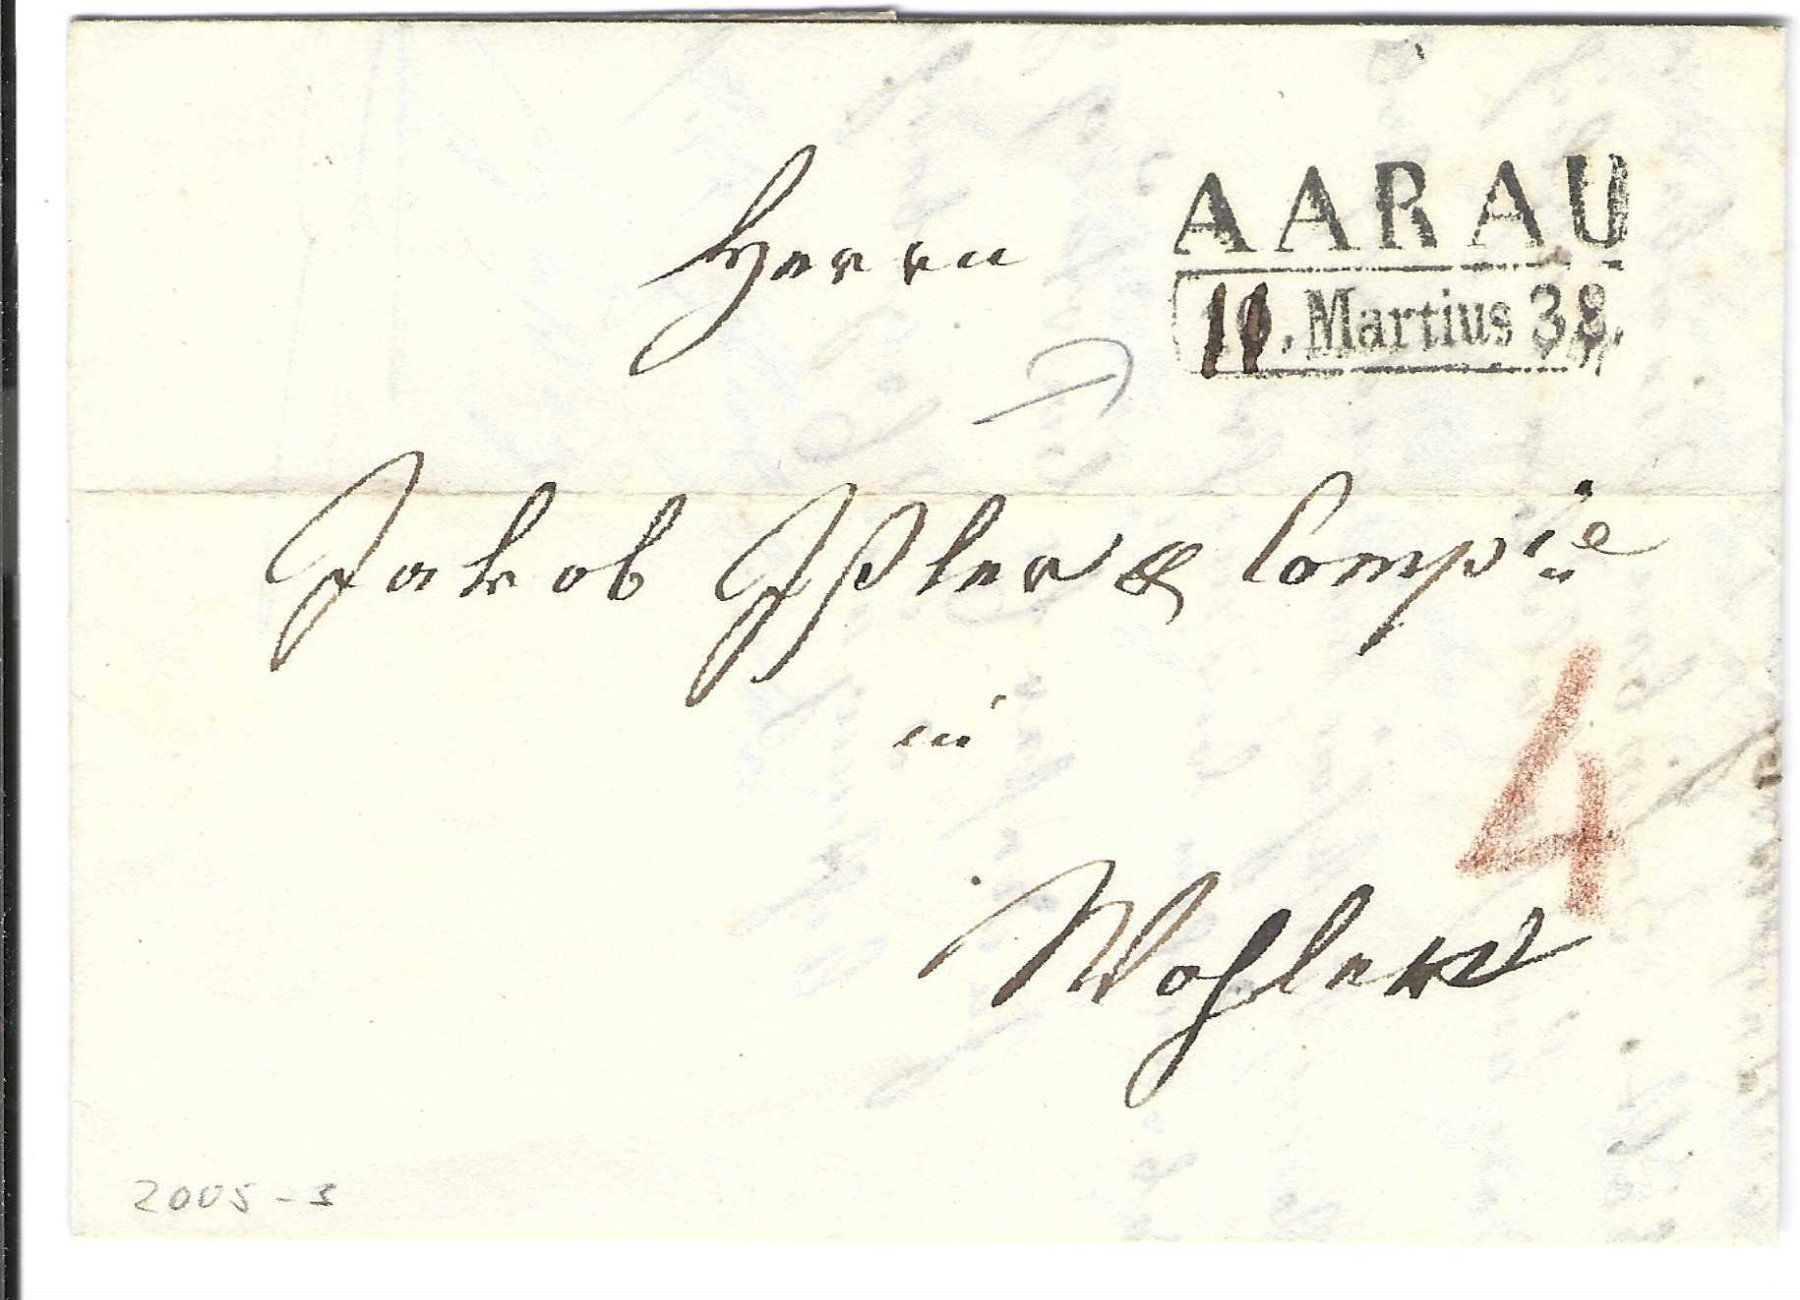 AARAU
11. Martius 38.
Herrn
Jakob Ißler & Compie
in
Wohlen
4
2005-3